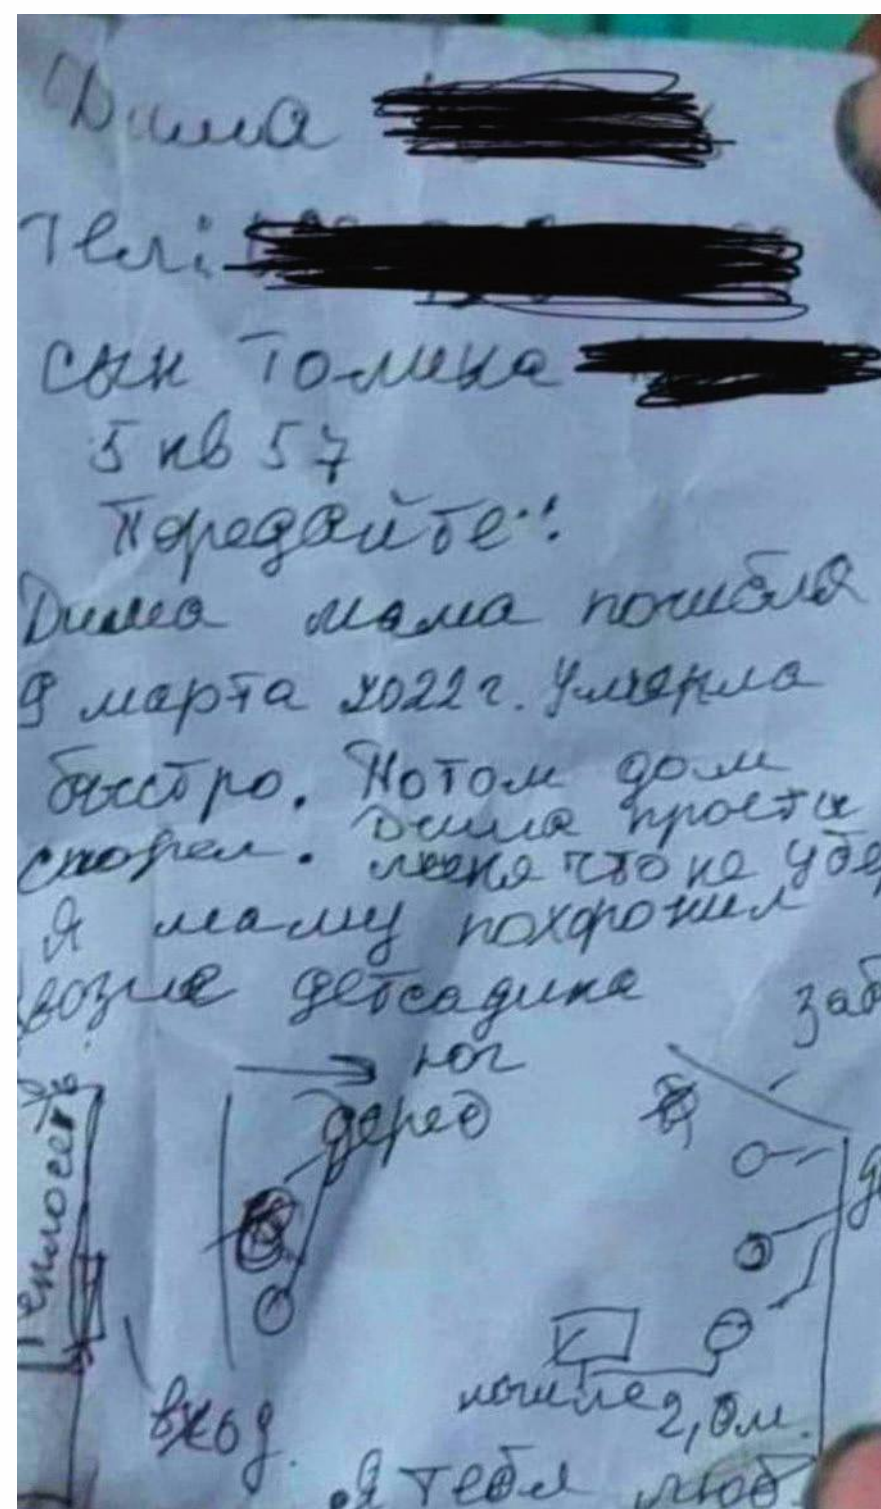 Дима
Тел:
сын Толика
5 кв 57
Передайте!!
Дима мама погибла
9 марта 2022 г. Умерла
быстро. Потом дом
сгорел. Дима прости
меня что не убер
Я маму похоронил
возле детсадика
заб
юг
дерев
Теплосеть
де
вход
могила 2,0 м.
Я тебя люб